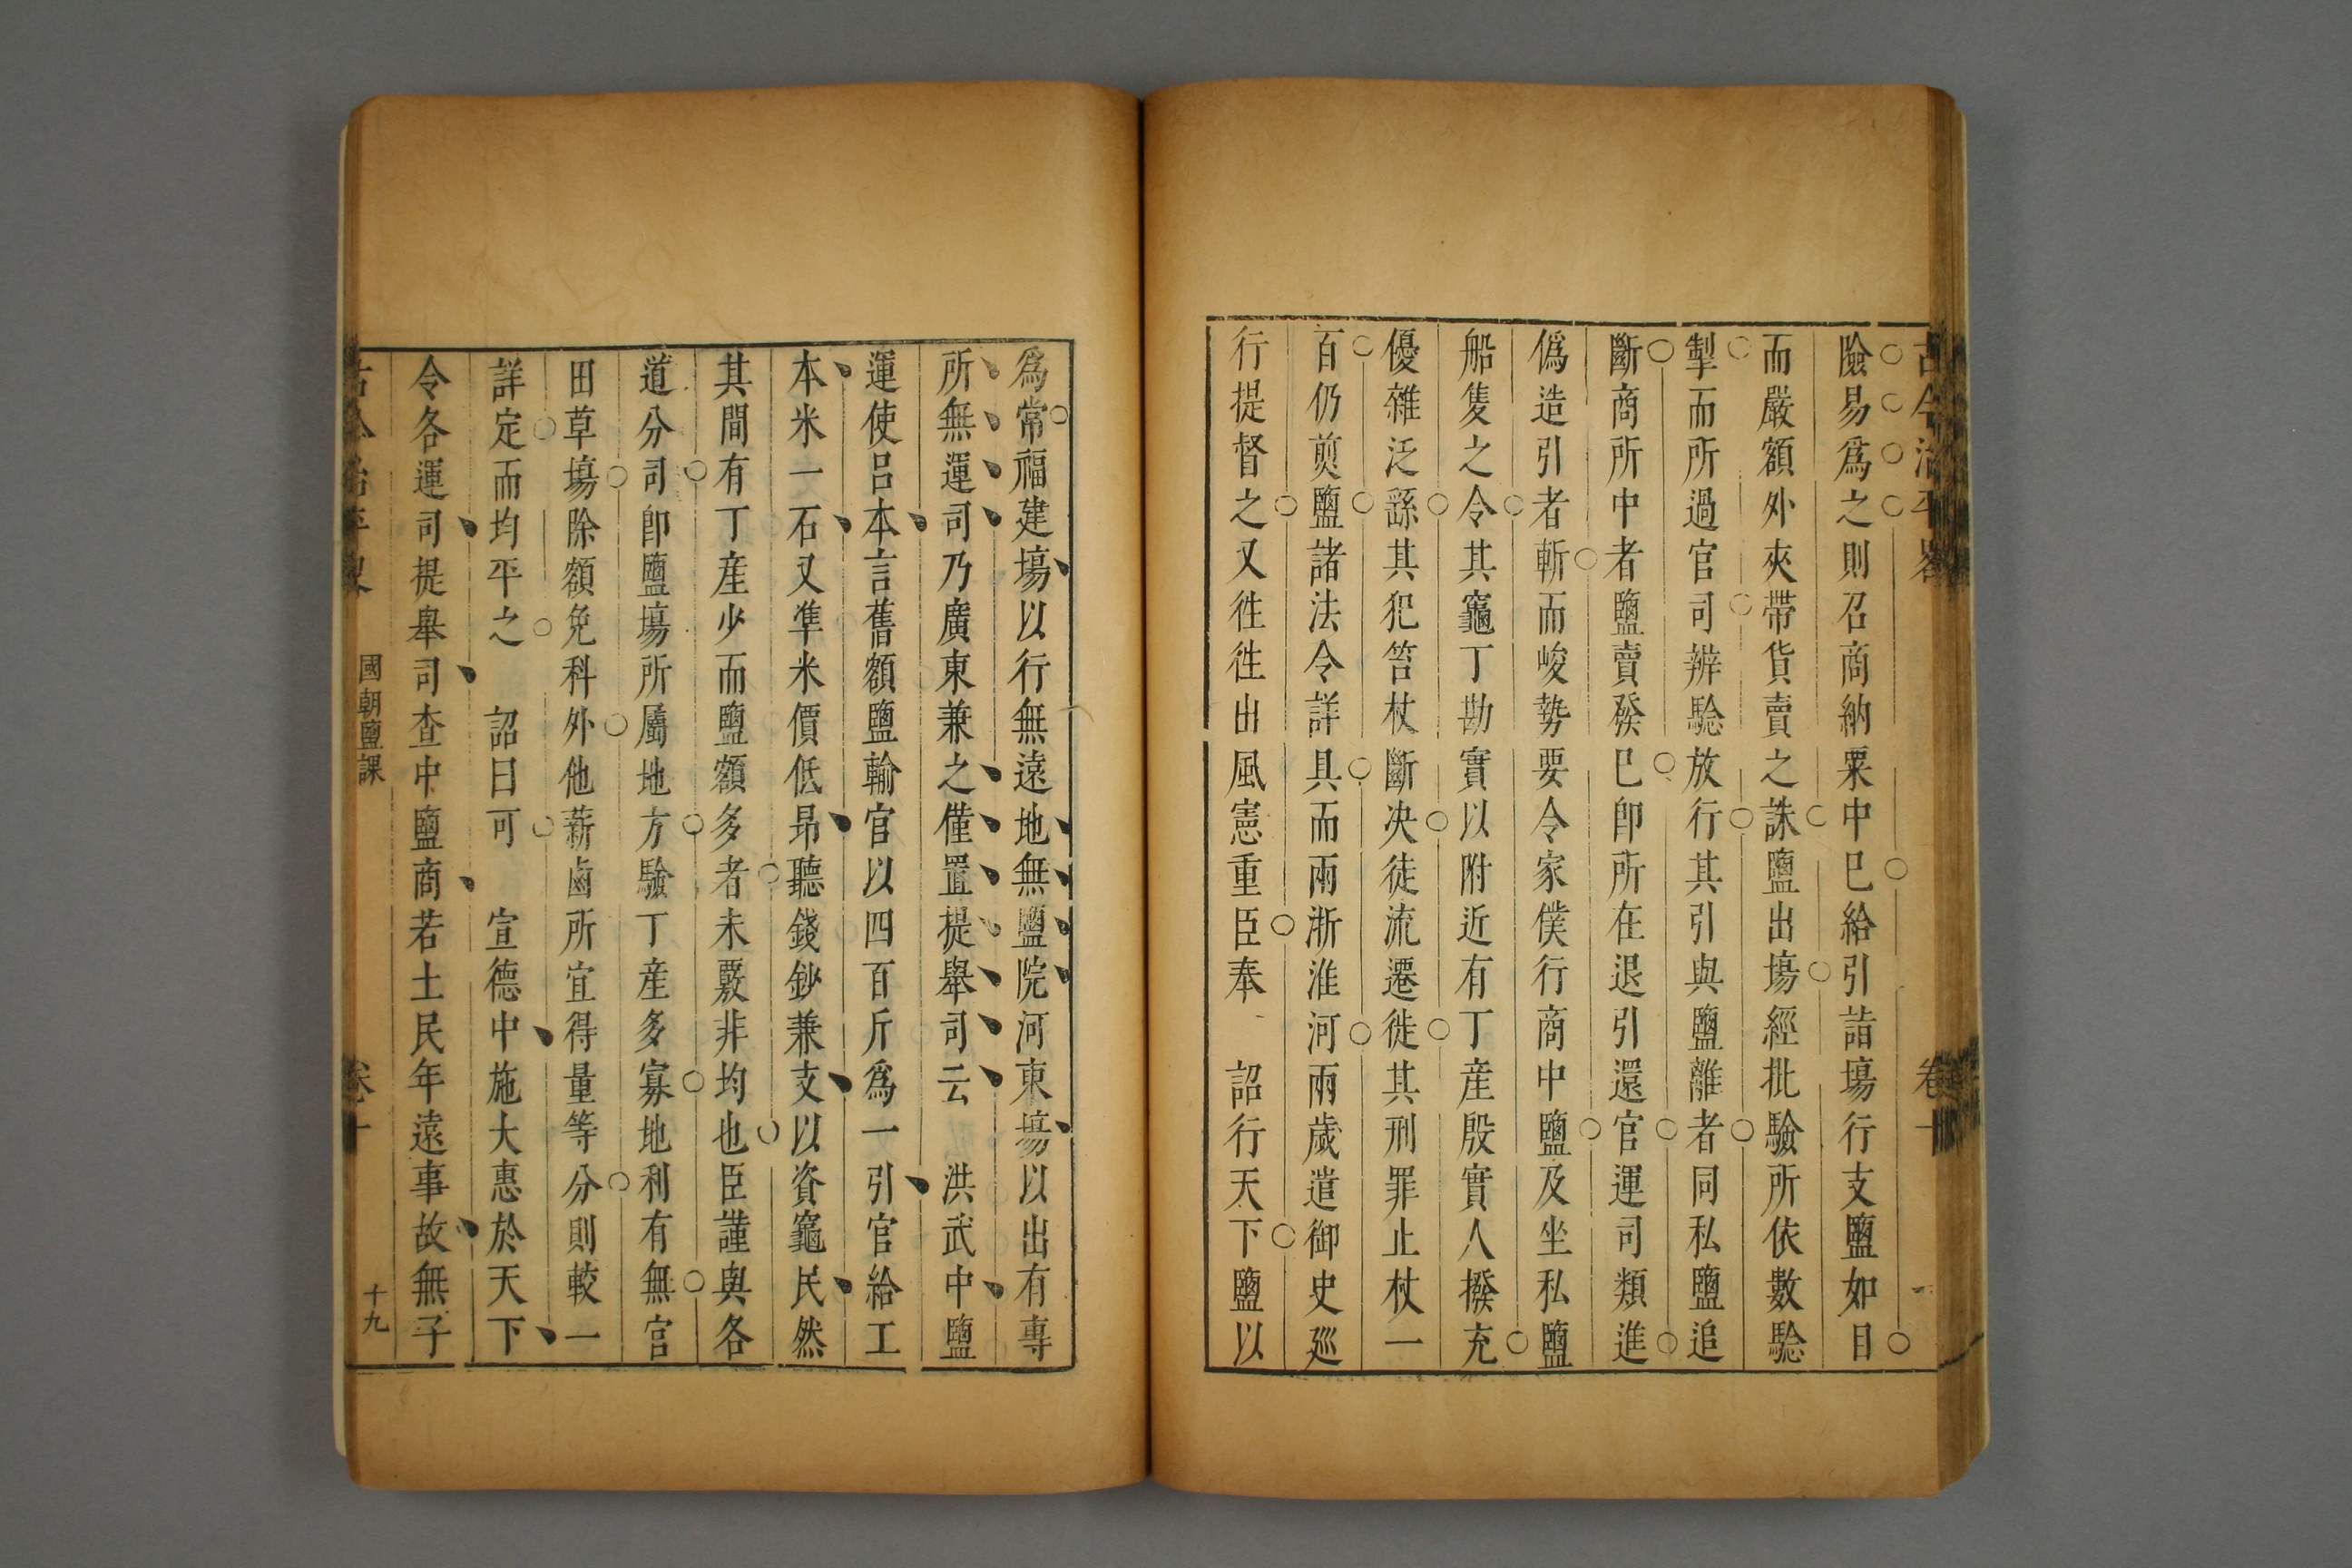 古今治平畧 卷十
險易爲之則召商納粟中巳給引詣塲行支鹽如目
而嚴額外夾帶貨賣之誅鹽出塲經批驗所依數驗
掣而所過官司辨驗放行其引與鹽離者同私鹽追
斷商所中者鹽賣發巳卽所在退引還官運司類進
僞造引者斬而峻勢要令家僕行商中鹽及坐私鹽
船隻之令其竈丁勘實以附近有丁產殷實人撥充
優雜泛繇其犯笞杖斷决徒流遷徙其刑罪止杖一
百仍煎鹽諸法令詳具而兩浙淮河兩歲遣御史廵
行提督之又徃徃出風憲重臣奉 詔行天下鹽以
爲常福建塲以行無遠地無鹽院河東塲以出有專
所無運司乃廣東兼之僅置提舉司云 洪武中鹽
運使呂本言舊額鹽輸官以四百斤爲一引官給工
本米一石又準米價低昻聽錢鈔兼支以資竈民然
其間有丁產少而鹽額多者未覈非均也臣謹與各
道分司卽鹽塲所屬地方驗丁產多寡地利有無官
田草塲除額免科外他薪鹵所宜得量等分則較一
詳定而均平之 詔曰可 宣德中施大惠於天下
令各運司提舉司查中鹽商若土民年遠事故無子
古今治平畧 國朝鹽課 卷十 十九